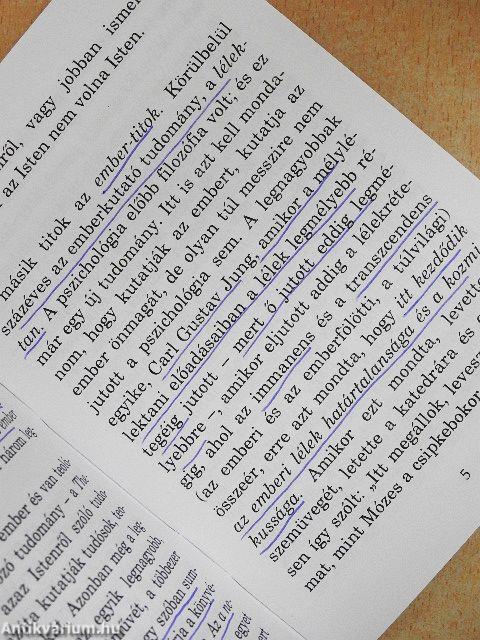 nről, vagy jobban ismer
az Isten nem volna Isten.
másik titok az ember-titok. Körülbelül
százéves az emberkutató tudomány, a lélek-
tan. A pszichológia előbb filozófia volt, és ez
már egy új tudomány. Itt is azt kell monda-
nom, hogy kutatják az embert, kutatja az
ember önmagét, de olyan túl messzire nem
jutott a pszichológia sem. A legnagyobbak
egyike, Carl Gustav Jung, amikor a mélylé-
lektani előadásaiban a lélek legmélyebb ré-
tegéig jutott – mert ő jutott eddig legmé-
lyebbre –, amikor eljutott addig a lélekréte-
gig, ahol az immanens és a transzcendens
(az emberi és az emberfölötti, a túlvilági)
összeér, erre azt mondta, hogy itt kezdődik
az emberi lélek határtalansága és a kozmi
kussága. Amikor ezt mondta, levette
szemüvegét, letette a katedrára és
sen így szólt: „Itt megállok, levesz
mat, mint Mózes a csipkebokor
5
ember
három leg
ember és van teoló
ozó tudomány – a The
azaz Istenről szóló tudo-
a kutatják tudósok, ter-
Azonban még a leg
egyik legnagyobb,
művét, a többezer
gy szóban sum-
ja a könyvé-
Az a ne-
egyet
ért
Antikvárium.hu